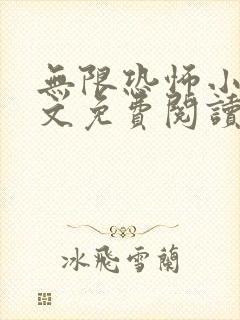 無限恐怖小
文免費閱讀
冰飛雪蘭